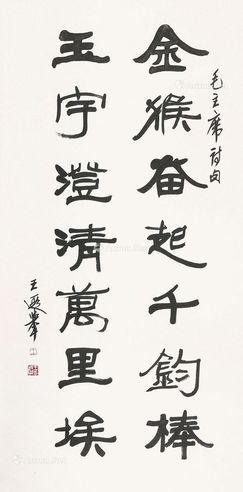 毛主席诗句
金猴奋起千鈞棒
玉宇澄清萬里埃
王遐举